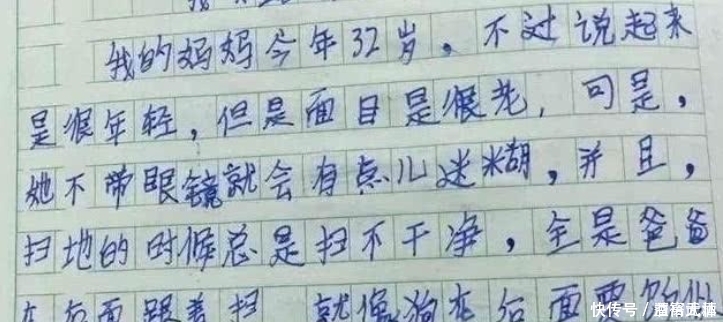 我的妈妈今年32岁，不过说起来
是很年轻，但是面目是很老，可是，
她不带眼镜就会有点儿迷糊，并且，
扫地的时候总是扫不干净，全是爸爸
在后面跟着扫 就像狗在后面
快传号／